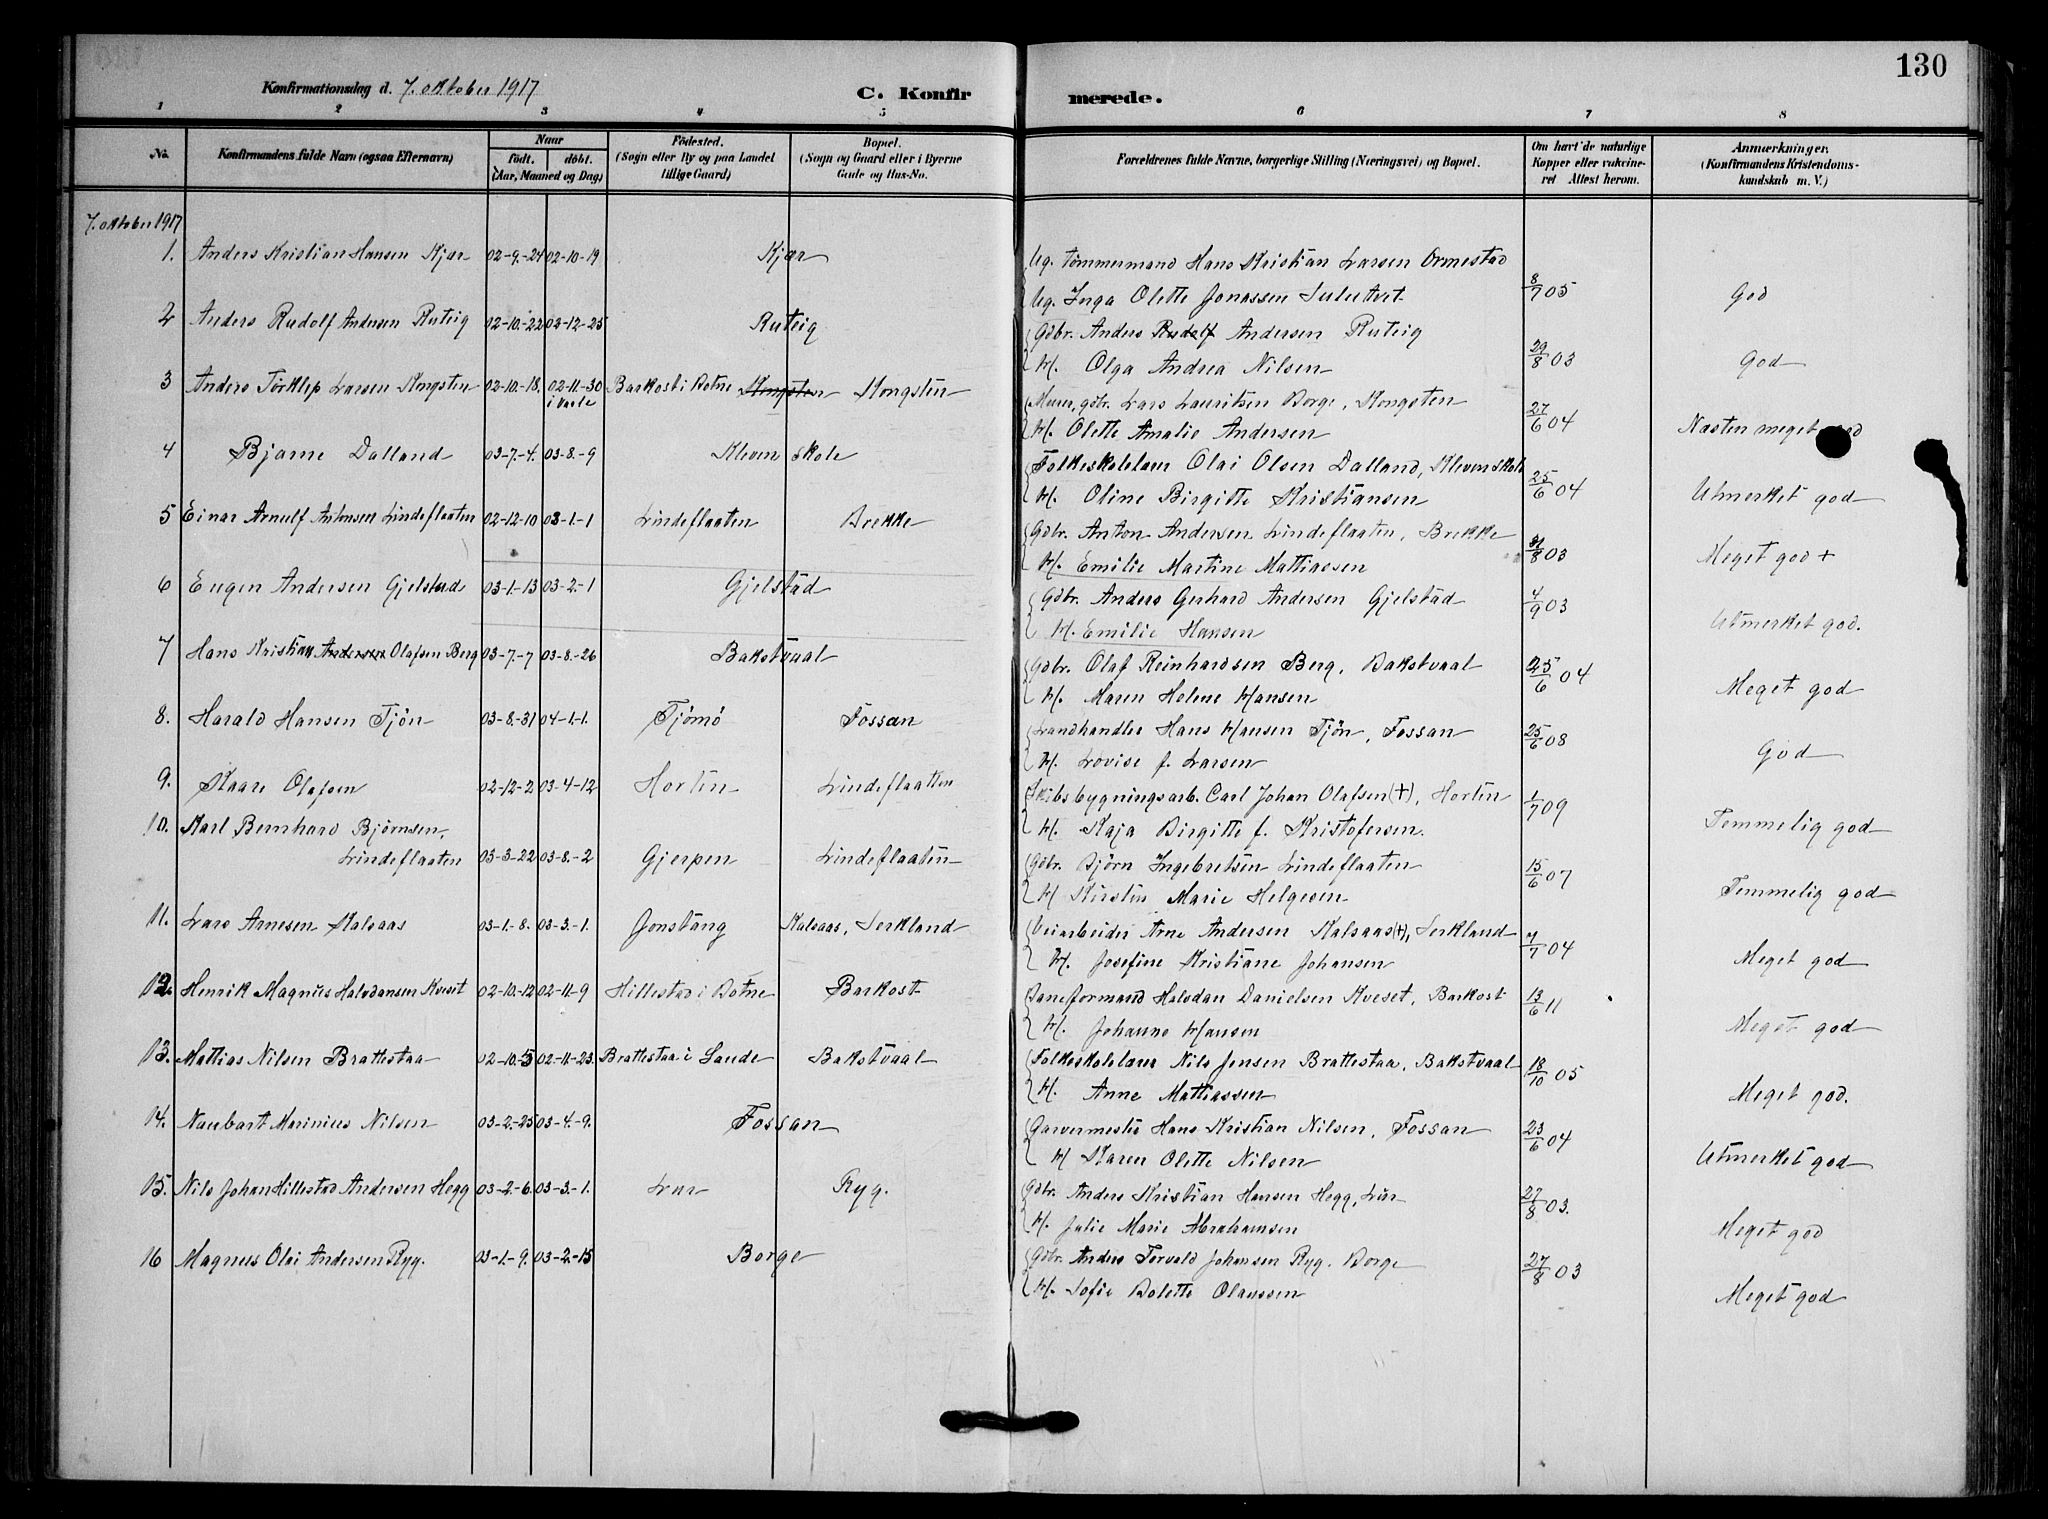 130
Konfirmationsdag d. 7. oktober 1917 C. Konfirmerede.
1 2 3 4 5 6 7 8
No. Konfirmandens fulde Navn (ogsaa Efternavn) Naar født. døbt. (Aar, Maaned og Dag) Födested. (Sogn eller By og paa Landet tillige Gaard) Bopæl. (Sogn og Gaard eller i Byerne Gade og Hus-No. Forældrenes fulde Navne, borgerlige Stilling (Næringsvei) og Bopæl. Om havt de naturlige Kopper eller vakcineret Attest herom. Anmærkninger. (Konfirmandens Kristendomskundskab m. V.)
7. oktober 1917
1. Anders Kristian Hansen Kjær 02-9-24 02-10-19 Kjær Ug. Tømmermand Hans Kristian Larsen Ormestad
Ug. Inga Olette Jonassen 8/7 05 God
2 Anders Rudolf Andersen Ruteig 02-10-22 02-12-25 Ruteig Gdbr. Anders Rudolf Andersen Ruteig
H. Olga Andrea Nilsen 29/8 03 God
3 Anders Torklep Larsen Kongsten 02-10-18. 02-11-30 i Vaale Barkost i Botne Kongsten Kongsten Murer, gdbr. Lars Lauritsen Borge, Kongsten
H. Olette Amalie Andersen 27/6 04 Næsten meget god
4 Bjarne Dalland 03-7-4. 03-8-9 Kleven skole Folkeskolelærer Olai Olsen Dalland, Kleven skole
H. Oline Birgitte Kristiansen 25/6 04 Utmerket god
5 Einar Arnulf Antonsen Lindeflaaten 02-12-10 03-1-1 Lindeflaaten Brekke Gdbr. Anton Andersen Lindeflaaten, Brekke
H. Emilie Martine Mattiassen 31/8 03 Meget god +
6 Eugen Andersen Gjelstad 03-1-13 03-2-1 Gjelstad Gdbr. Anders Gerhard Andersen Gjelstad
H. Emilie Hansen 4/9 03 Utmerket god.
7 Hans Kristian Andersen Olafsen Berg 03-7-7 03-8-26 Bakstvaal Gdbr. Olaf Reinhardsen Berg, Bakstvaal
H. Maren Helene Hansen 25/6 04 Meget god
8. Harald Hansen Tjön 03-8-31 04-1-1. Tjömö Fossan Landhandler Hans Hansen Tjön, Fossan
H. Lovise f. Larsen 25/6 08 God
9. Kaare Olafsen 02-12-2 03-4-12 Horten Lindeflaatten Skibsbygningsarb. Carl Johan Olafsen (+), Horten
H. Kaja Birgitte f. Kristofersen. 1/7 09 Temmelig god
10. Karl Bernhard Bjørnsen,
Lindeflaaten 03-3-22 03-8-2 Gjerpen Lindeflaaten Gdbr. Bjørn Ingebretsen Lindeflaaten
H Kirstin Marie Helgesen 15/6 07 Temmelig god
11. Lars Arnesen Kalsaas 03-1-8. 03-3-1. Jonstang Kalsaas, Serkland Veiarbeider Arne Andersen Kalsaas (+), Serkland
H. Josefine Kristiane Johansen 7/7 04 Meget god
12. Henrik Magnus Halvdansen Kveset 02-10-12 02-11-9 Hillestad i Botne Barkost Baneformand Halvdan Danielsen Kveset, Barkost
H. Johanne Hansen 13/6 11 Meget god
13. Mattias Nilsen Brattestaa 02-10-5 02-11-23. Brattestaa i Sande Bakstvaal Folkeskolelærer Nils Jensen Brattestaa, Bakstvaal
H. Anne Mattiassen 18/10 05 Meget god.
14. Naubart Marinius Nilsen 03-2-25 03-4-9. Fossan Garvermester Hans Kristian Nilsen, Fossan
H Karen Olette Nilsen 23/6 04 Utmerket god
15. Nils Johan Hillestad Andersen Hegg 03-2-6. 03-3-1. Lur Ryg. Gdbr. Anders Kristian Hansen Hegg, Lur
H. Julie Marie Abrahamsen 27/8 03. Meget god
16 Magnus Olai Andersen Ryg. 03-1-9. 03-2-15 Borge Gdbr. Anders Torvald Johansen Ryg. Borge
H. Sofie Bolette Olaussen 27/8 03 Meget god